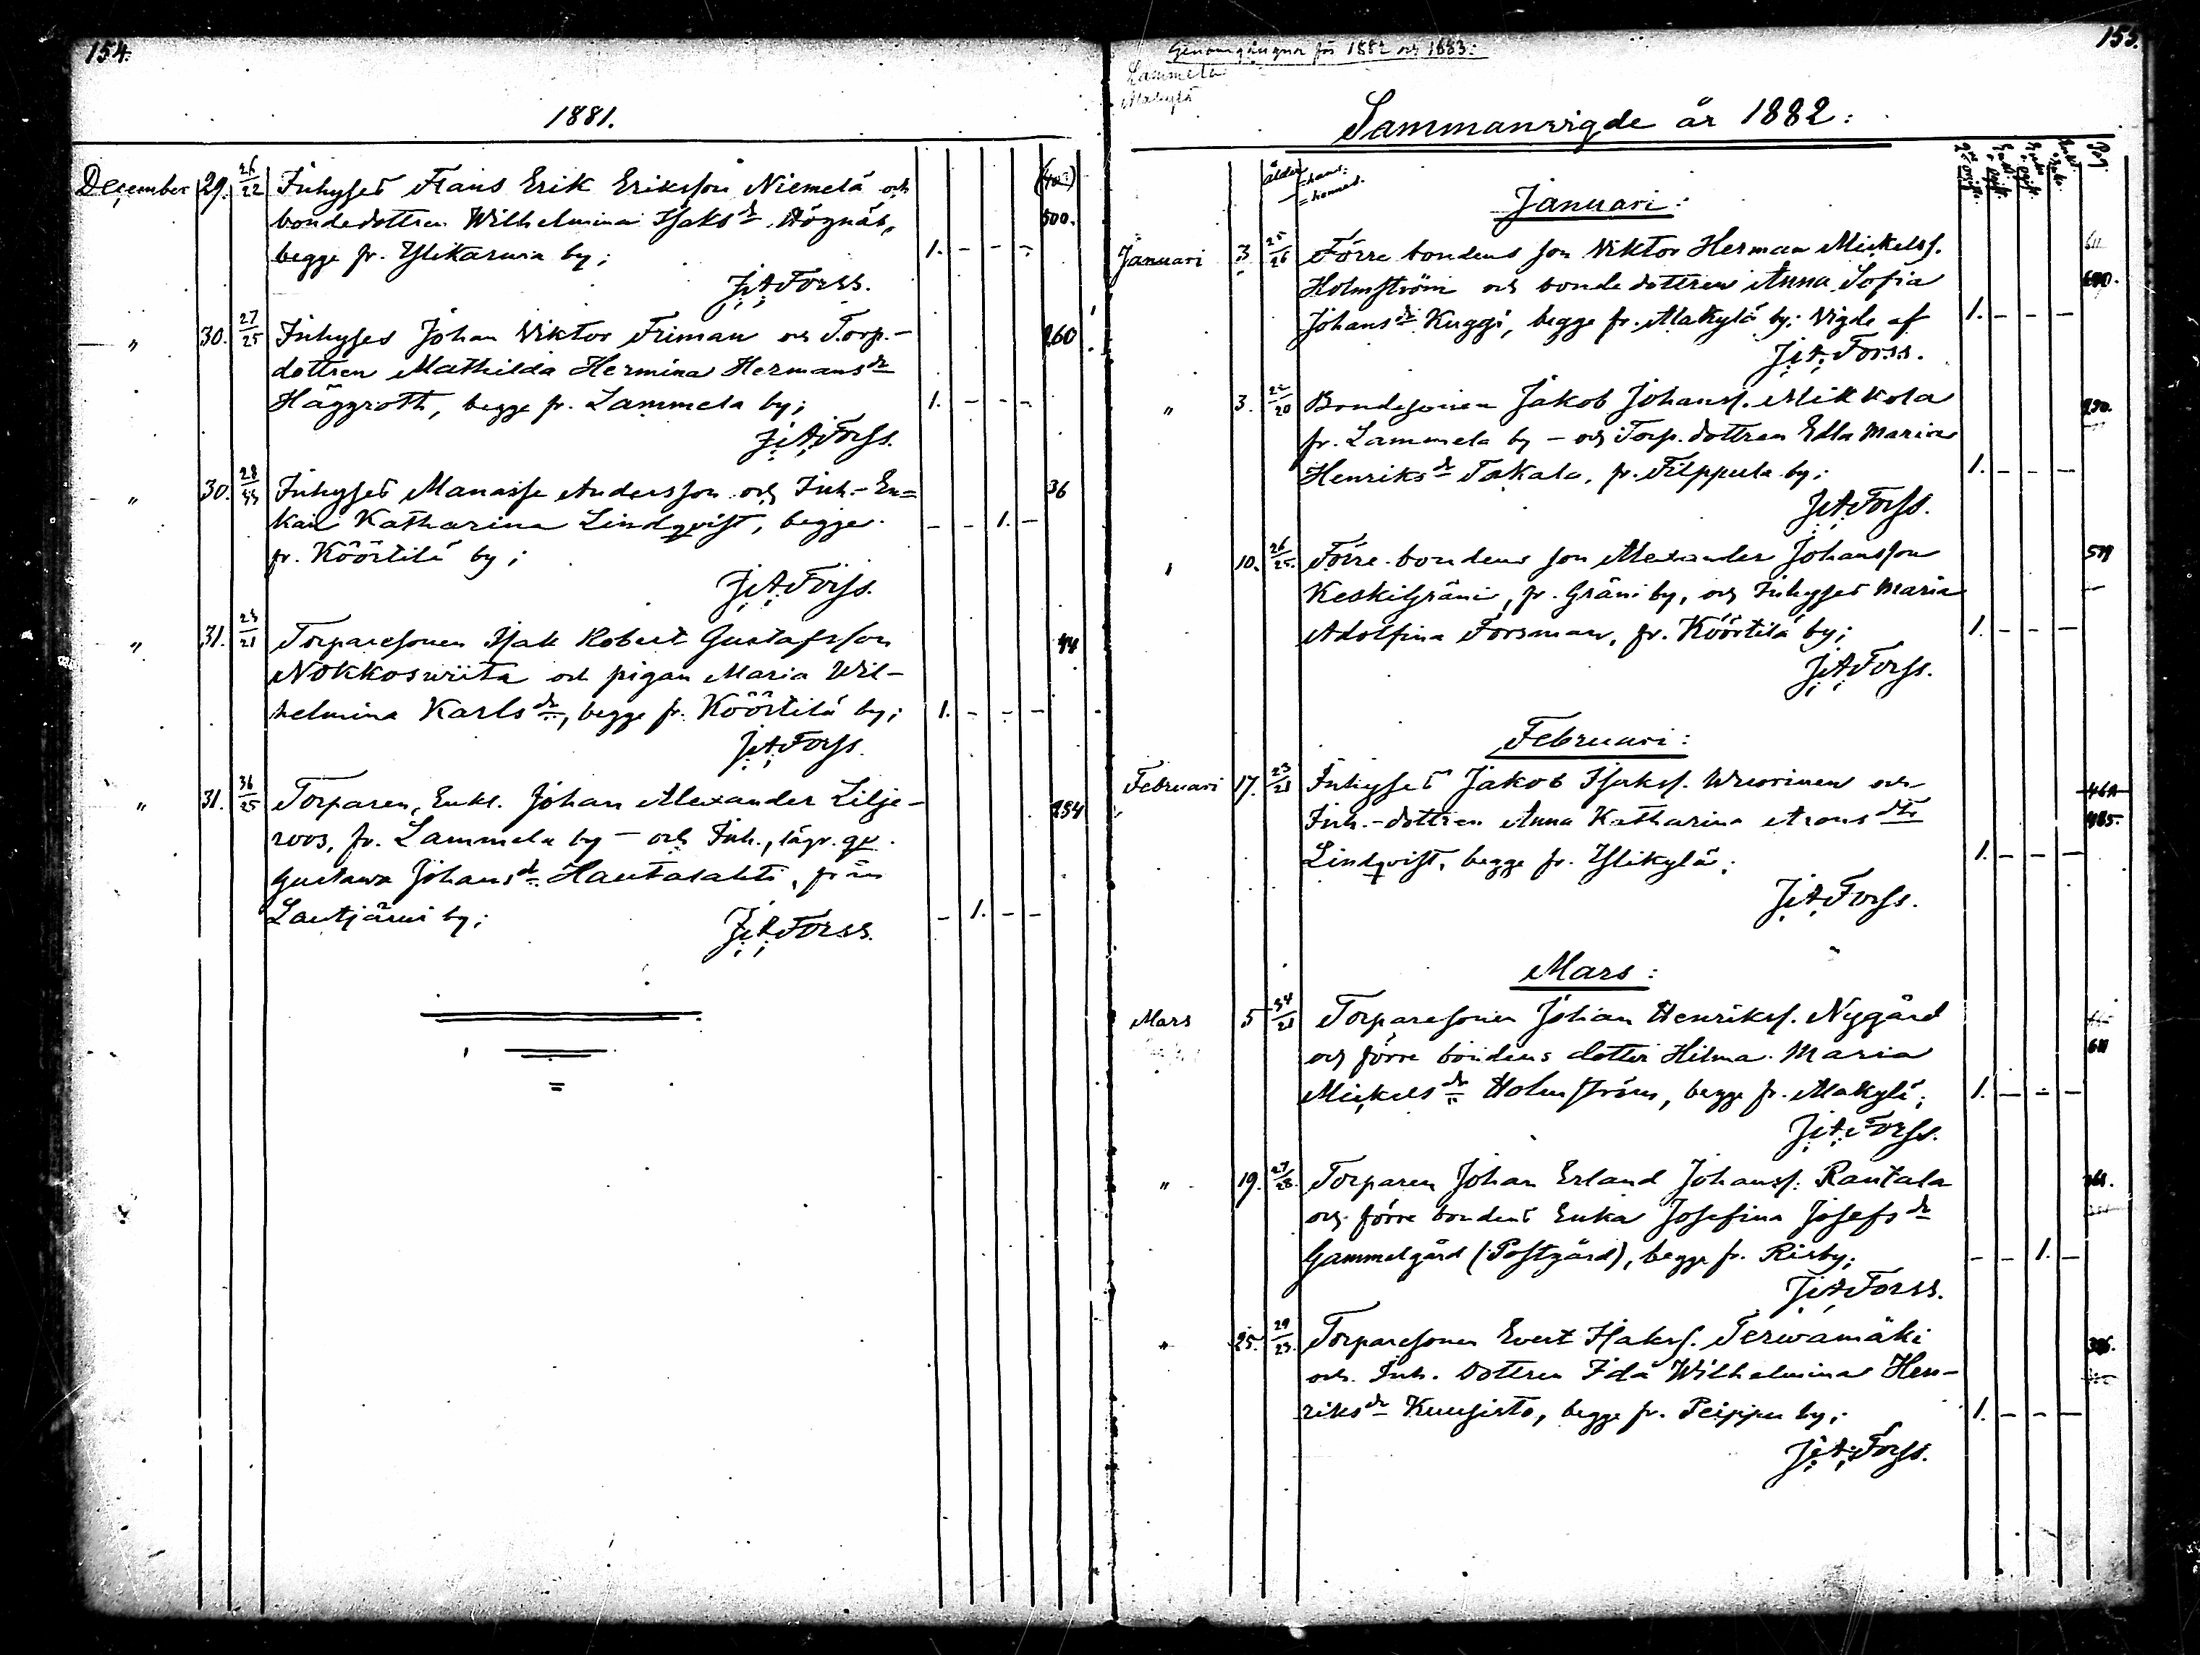 154.
1881.
December 29. 26/22 Inhyses Frans Erik Eriksson Niemelä och
bondedottren Wilhelmina Isaksdr Högnäs, 500.
begge fr. Ylikarwia by; 1. - - -
J. A. Forss.
" 30. 27/25 Inhyses Johan Viktor Friman och Torp.- 260
dottren Mathilda Hermina Hermansdr
Häggroth, begge fr. Lammela by; 1. - - -
J. A. Forss.
" 30. Inhyses Manasse Andersson och Inh.- En= 36
kan Katharina Lindqvist, begge - - 1. -
fr. Köörtilä by;
J. A. Forss.
" 31. 23/21 Torparesonen Isak Robert Gustafsson 44
Nokkoswiita och pigan Maria Wil-
helmina Karlsdr, begge fr. Köörtilä by; 1. - - -
J. A. Forss.
" 31. 36/25 Torparen, Enkl. Johan Alexander Lilje- 254
roos, fr. Lammela by - och Inh., lägr. qv.
Gustawa Johansdr Hautalahti, från
Lautjärwi by; - 1. - -
J. A. Forss.
155.
Genomgångna för 1882 och 1883:
Lammela
Makylä
Sammanvigde år 1882:
ålder
Pag.
Januari:
Januari 3. 25/26 Förre bondens son Viktor Herman Mickelss.
Holmström och bondedottren Anna Sofia
Johansdr Kuggi, begge fr. Makylä by; Vigde af 1. - - -
J. A. Forss.
" 3. 22/20 Bondesonen Jakob Johanss. Mikkola
fr. Lammela by - och Torp. dottren Edla Maria
Henriksdr Takala, fr. Filppula by; 1. - - -
J. A. Forss.
" 10. 26/25. Förre bondens son Alexander Johansson
Keskigräni, fr. Gräni by, och Inhyses Maria
Adolfina Forsman, fr. Köörtilä by; 1. - - -
J. A. Forss.
Februari:
Februari 17. 23/21 Inhyses Jakob Isakss. Wuorinen och
Inh.-dottren Anna Katharina Aronsdtr 465.
Lindqvist, begge fr. Ylikylä; 1. - - -
J. A. Forss.
Mars:
Mars 5 34/21 Torparesonen Johan Henrikss. Nygård
och förre bondens dotter Hilma Maria 611
Mickelsdr Holmström, begge fr. Makylä; 1. - - -
J. A. Forss.
" 19. 27/28. Torparen Johan Erland Johanss. Rantala
och förre bondens Enka Josefina Josefsdr
Gammelgård (Postgård), begge fr. Risby; - - 1. -
J. A. Forss.
" 25. 29/23. Torparesonen Evert Isakss. Terwamäki
och Inh. dottren Ida Wilhelmina Hen-
riksdr Kuusisto, begge fr. Peippu by; 1. - - -
J. A. Forss.